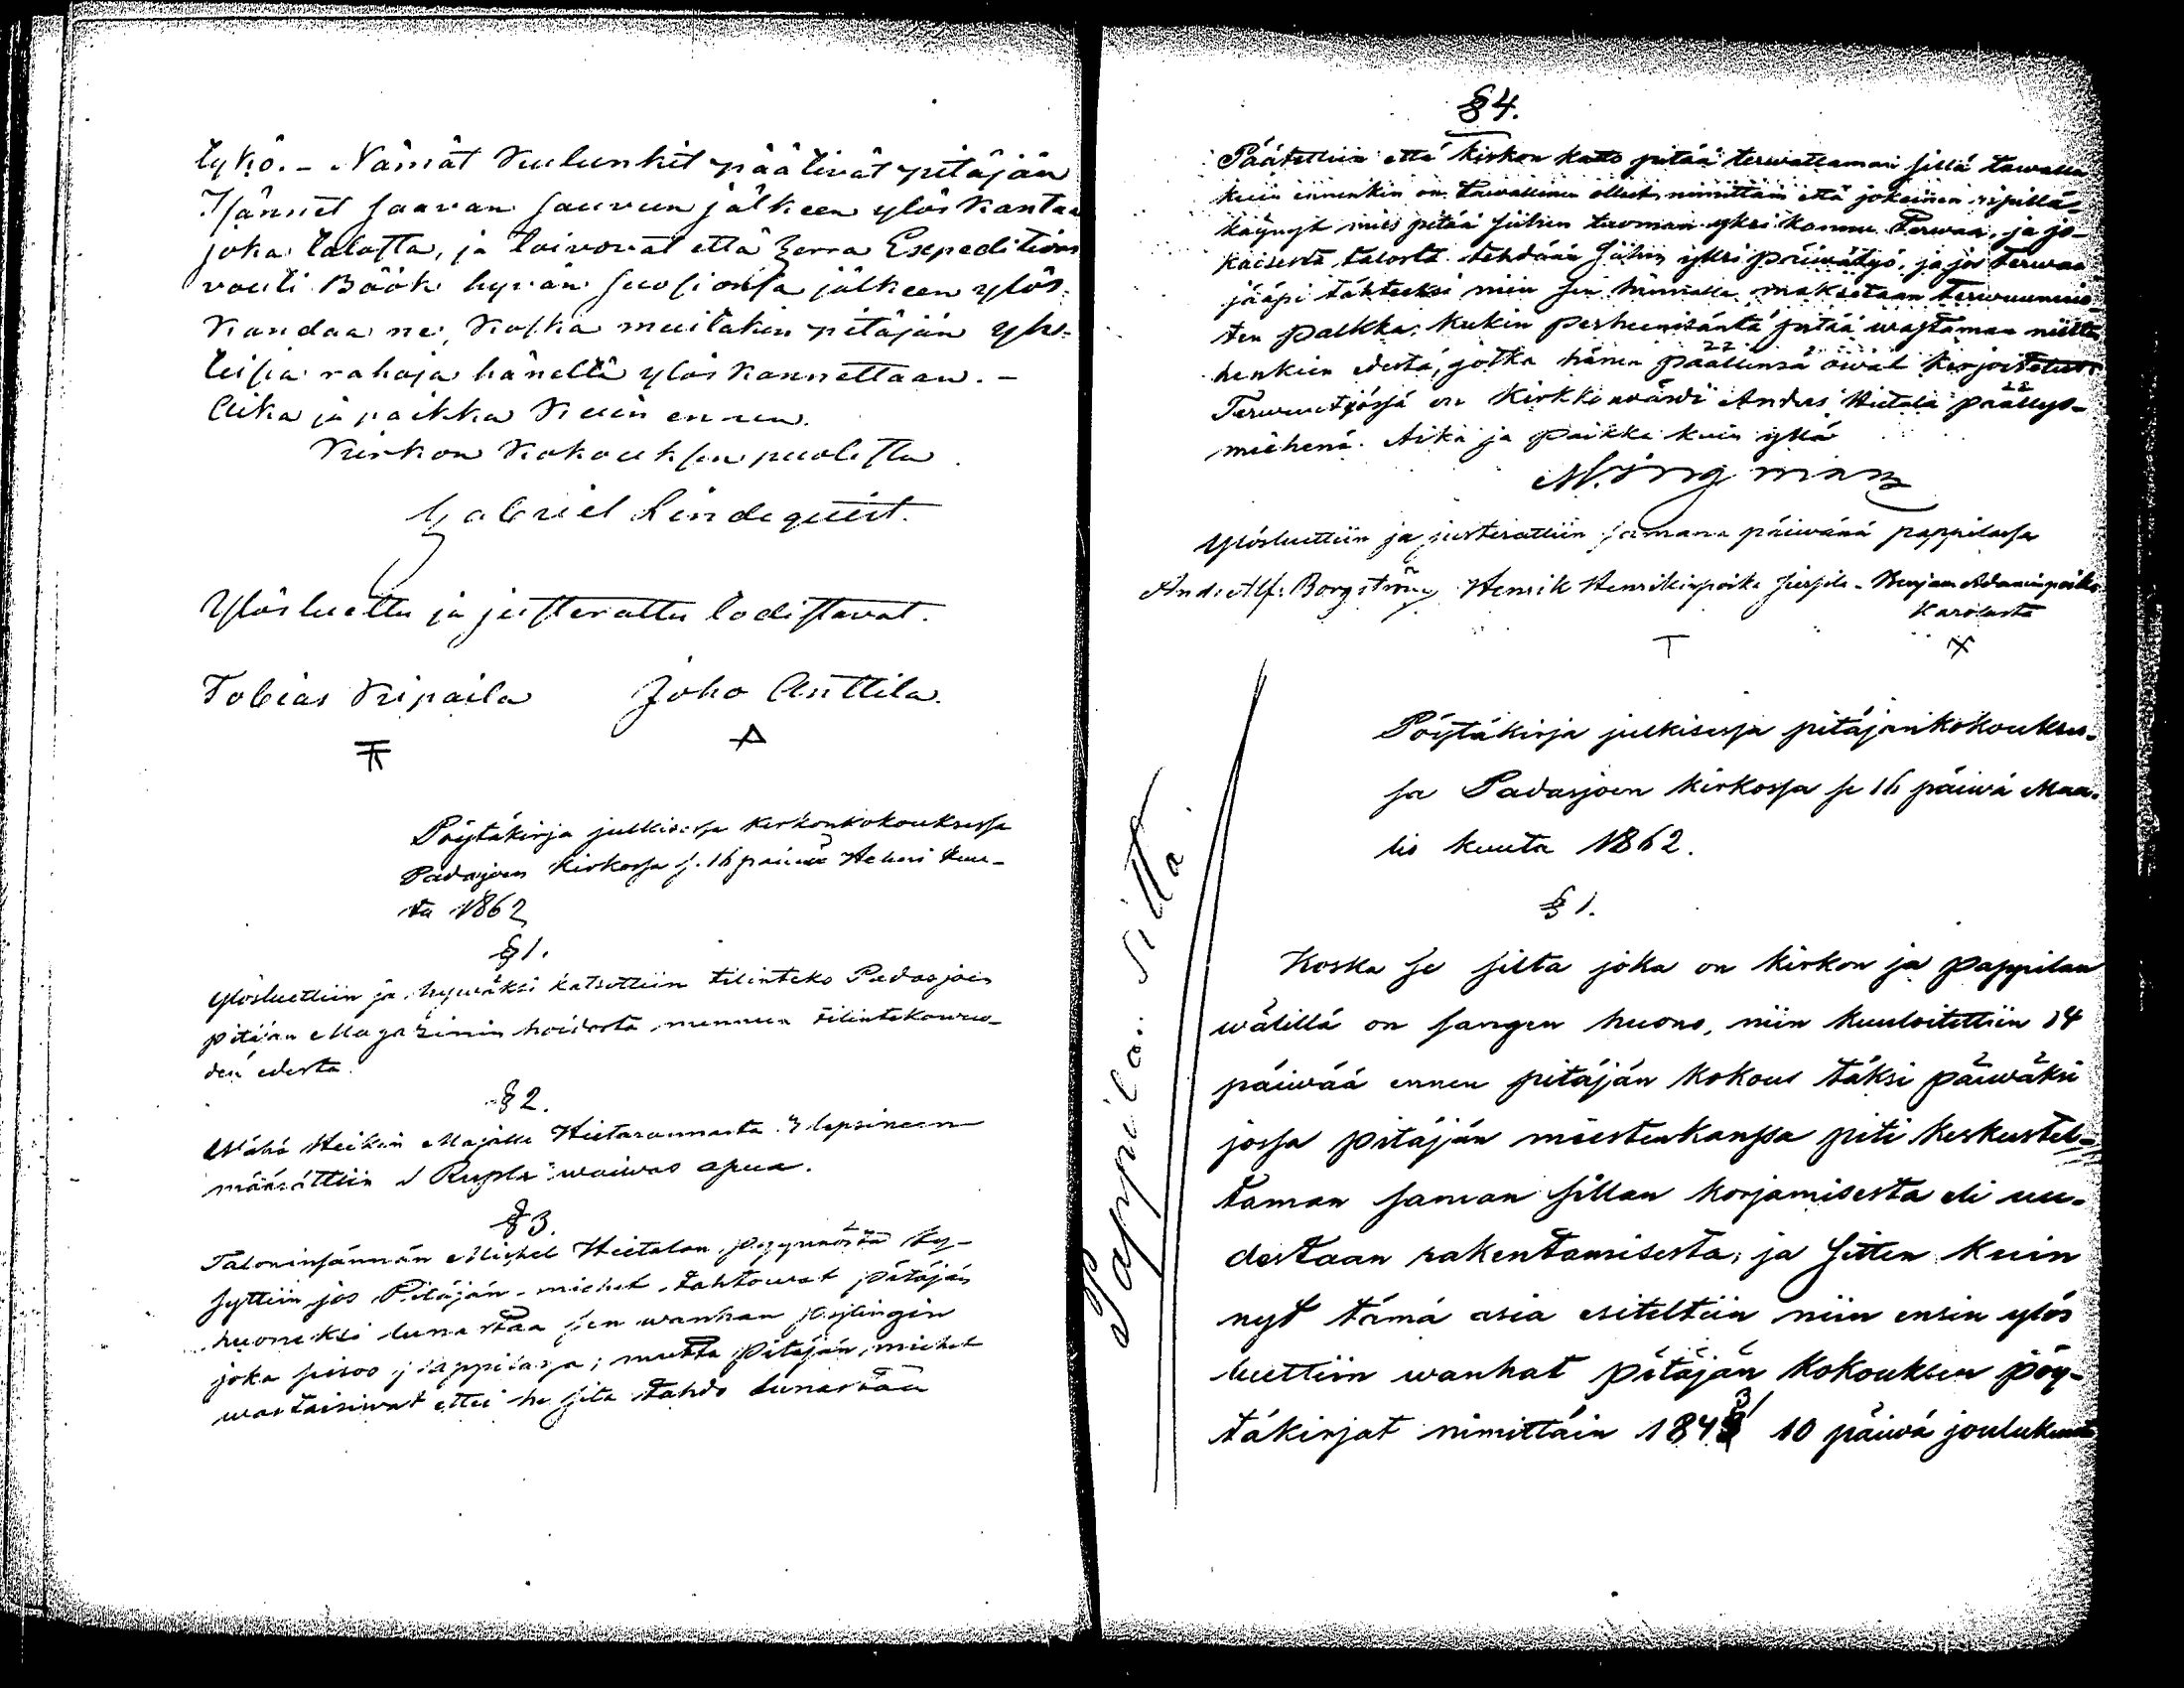 työ. - Nämät kulunkit päätivät pitäjän
Isännet saavan sauvun jälkeen ylöskantaa
joka talosta, ja toivovat että Herra Expeditions
vouti Böök hyvän suosionsa jälkeen ylös-
kandaa ne, koska muitakin pitäjän yh-
teisiä rahoja häneltä ylöskannettaan. -
Aika ja paikka kuin ennen.
Kirkon kokouksen puolesta
Gabriel Lindequist.
Ylösluettu ja justerattu todistavat.
Tobias Kripaila Joho Anttila.
Pöytäkirja julkisessa kirkonkokouksessa
Padasjoen kirkossa s. 16 päivä Helmi kuu-
ta 1862
§ 1.
Ylösluettiin ja hywäksi katsottiin tilinteko Padasjoen
pitäjän Magasinin hoidosta mennen tilintekowuo-
den edestä.
§ 2.
Mähä Heikin Majalle Hietarannasta 3 lapsineen
määrättiin 1 Rupla waiwas apua.
§ 3.
Taloninsännän Michel Hietalan pyynnöstä ky-
syttiin jos Pitäjän-miehet tahtowat pitäjän
huoneksi lunastaa sen wanhan
joka seisoo pappilassa; mutta Pitäjän miehet
wastaisiwat ettei he sitä tahdo lunastaa
§ 4.
Päätettiin että kirkon katto pitää terwattaman sillä tawalla
kuin ennenkin on tawallinen ollut, nimittäin että jokainen ripillä-
käynyt mies pitää siihen tuoman yksi kannu Terwaa, ja jo-
kaisesta talosta tehdään siihen yksi päiwätyö, ja jos terwaa
jääpi tähteeksi niin sen hinnalla maksetaan Terwaumis-
ten palkka. Kukin perheenisäntä pitää wastaman niitten
henkien edestä, jotka hänen päällensä owat kirjoitetut.
Terwuutyössä on Kirkkowärdi Anders Hietala päällys-
miehenä. Aika ja paikka kuin yllä
N. Ingman
Ylösluettiin ja justerattiin samana päiwänä pappilassa
And: Alf: Borgström Henrik Henrikinpoika Seppilä - Benjam Adaminpoika
Karilasta
Pappilan silta
Pöytäkirja julkisessa pitäjänkokoukses-
sa Padasjoen kirkossa se 16 päiwä Maa-
lis kuuta 1862.
§ 1.
Koska se silta joka on kirkon ja pappilan
wälillä on sangen huono, niin kuuloitettiin 14
päiwää ennen pitäjän kokous täksi päiwäksi
jossa pitäjän miestenkanssa piti keskustel-
taman saman sillan korjamisesta eli uu-
destaan rakentamisesta; ja sitten kuin
nyt tämä asia esiteltiin niin ensin ylös
luettiin wanhat pitäjän kokouksen pöy-
täkirjat nimittäin 1843 10 päiwä joulukuuta